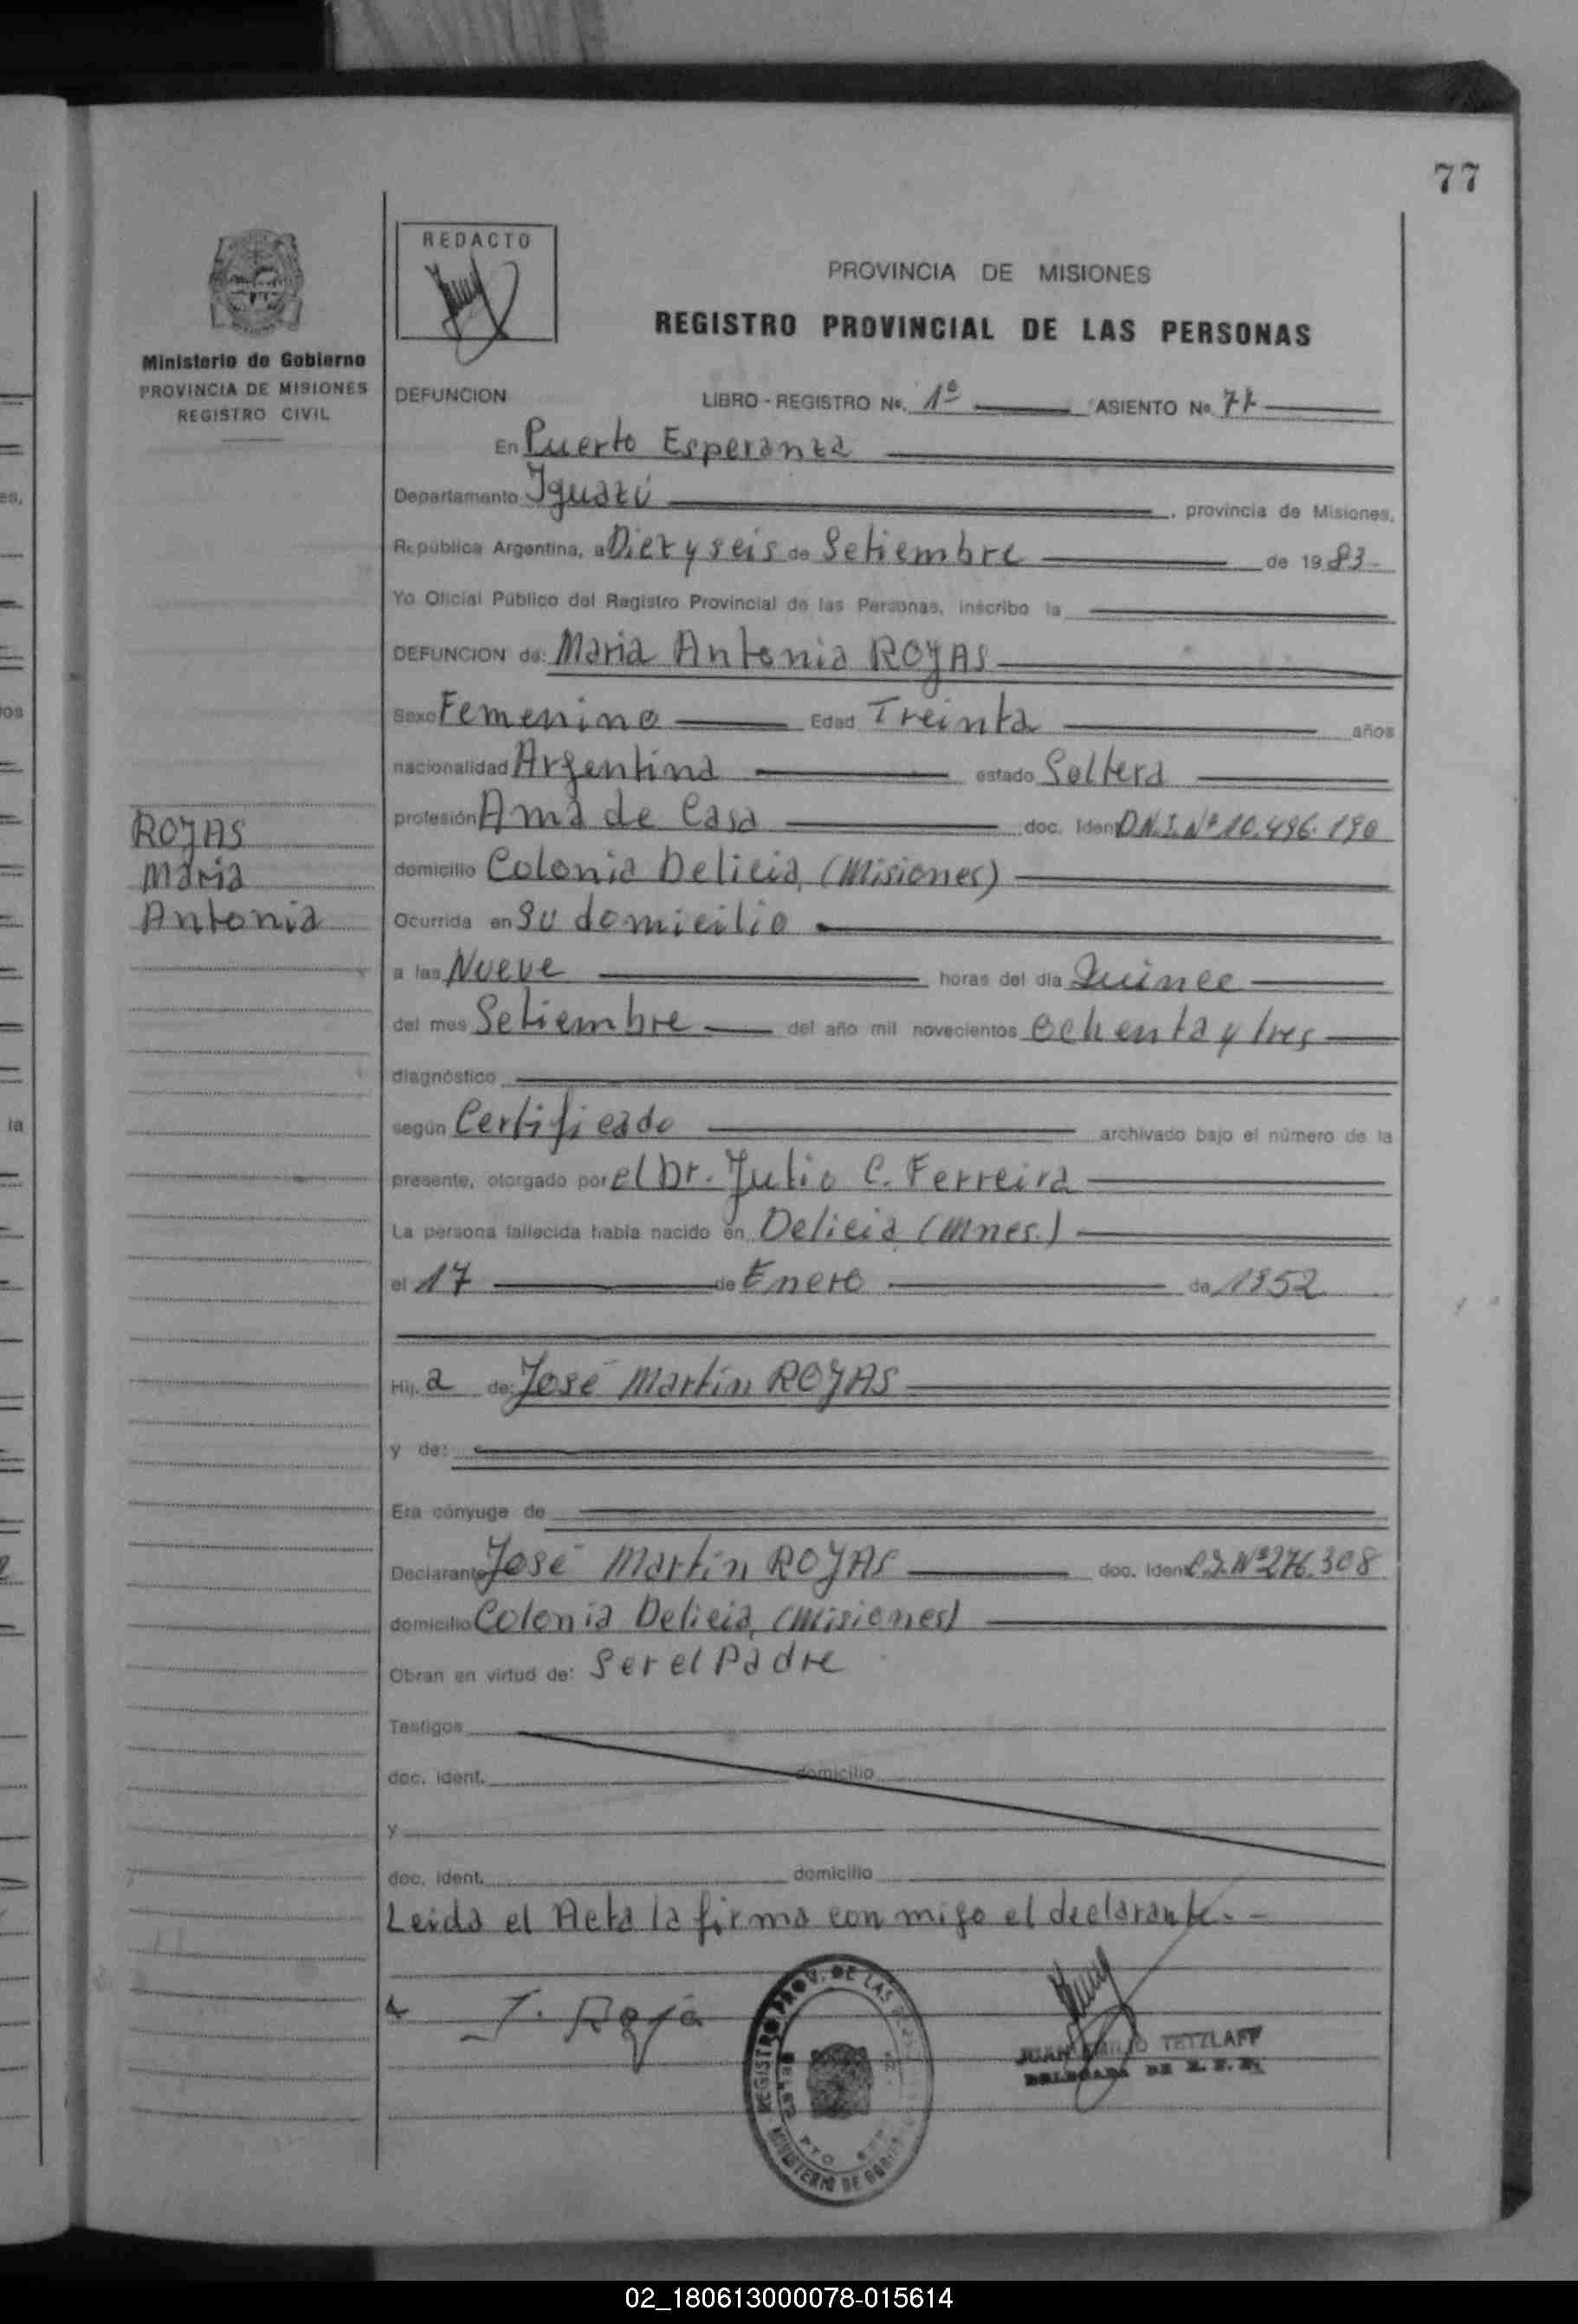 77
REDACTO
PROVINCIA DE MISIONES
REGISTRO PROVINCIAL DE LAS PERSONAS
Ministerio de Gobierno
PROVINCIA DE MISIONES
REGISTRO CIVIL
DEFUNCION LIBRO - REGISTRO No. 1º ASIENTO No. 77
En Puerto Esperanza
Departamento Iguazú, provincia de Misiones,
República Argentina, a Diez y seis de Setiembre de 1983-
Yo Oficial Público del Registro Provincial de las Personas, inscribo la
DEFUNCION de: Maria Antonia ROJAS
Sexo Femenino Edad Treinta años
nacionalidad Argentina estado Soltera
profesión Ama de Casa doc. Ident. D.N.I. Nº 10.496.190
domicilio Colonia Delicia, (Misiones)
Ocurrida en Su domicilio
a las Nueve horas del día Quince
del mes Setiembre del año mil novecientos ochenta y tres
diagnóstico
según Certificado archivado bajo el número de la
presente, otorgado por el Dr. Julio C. Ferreira
La persona fallecida había nacido en Delicia (Mnes.)
el 17 de Enero de 1952
Hij a de: José Martin ROJAS
y de:
Era cónyuge de
Declarante José Martin ROJAS doc. Ident. C.I. Nº 276.308
domicilio Colonia Delicia, (Misiones)
Obran en virtud de: Ser el Padre
Testigos
doc. ident. domicilio
y
doc. ident. domicilio
Leida el Acta la firma con migo el declarante.-
ROJAS
Maria
Antonia
J. Roja
REGISTRO PROV. DE LAS
MINISTERIO DE
TETZLAFF
DE
es,
os
la
02_180613000078-015614